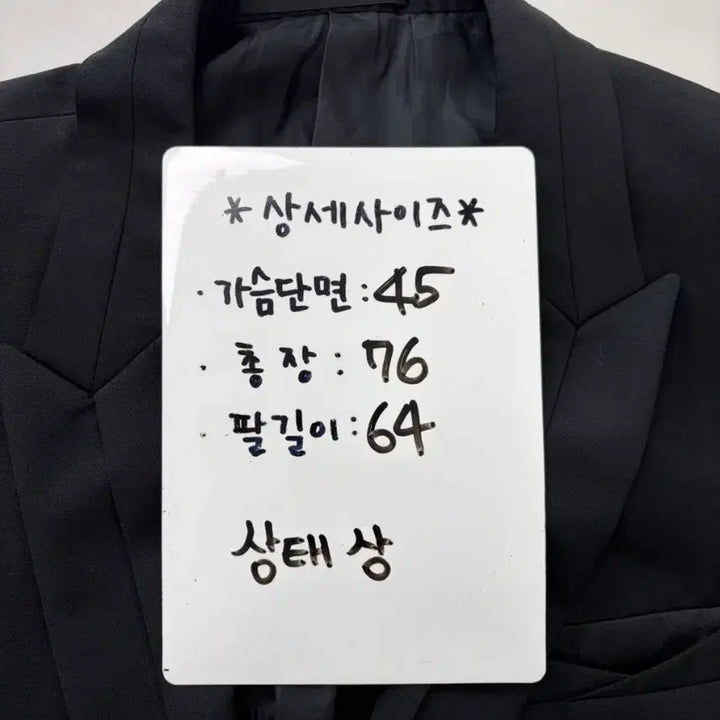 *상세사이즈*
· 가슴단면 : 45
· 총장 : 76
· 팔길이 : 64
상태 상